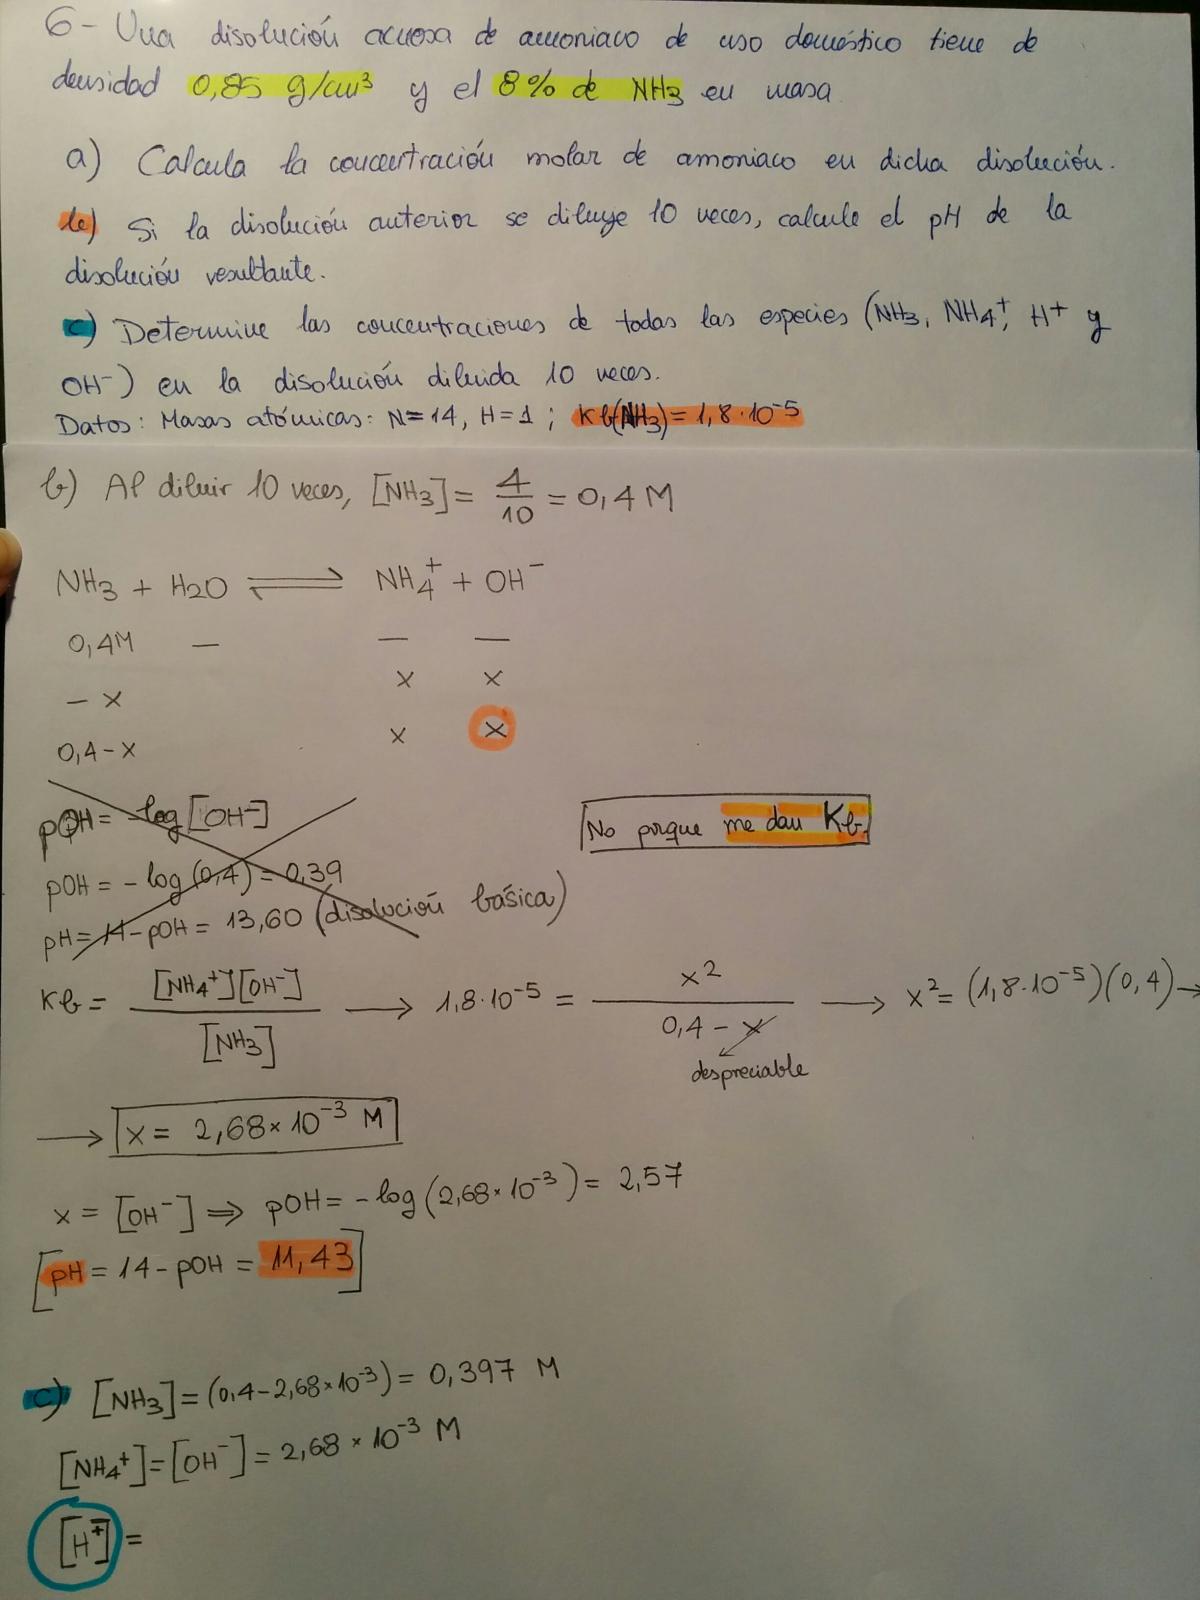 6- Una disolución acuosa de amoniaco de uso doméstico tiene de
densidad 0,85 g/cm³ y el 8% de NH3 en masa
a) Calcula la concentración molar de amoniaco en dicha disolución.
b) Si la disolución anterior se diluye 10 veces, calcule el pH de la
disolución resultante.
c) Determine las concentraciones de todas las especies (NH3, NH4⁺, H⁺ y
OH⁻) en la disolución diluida 10 veces.
Datos: Masas atómicas: N=14, H=1 ; Kb(NH3)=1,8·10⁻⁵
b) Al diluir 10 veces, [NH3] = 4/10 = 0,4 M
NH3 + H2O ⇌ NH4⁺ + OH⁻
0,4M — — —
— x x x
0,4-x x x
pOH = -log[OH⁻]
No porque me dan Kb.
pOH = -log(0,4) = 0,39
pH = 14-pOH = 13,60 (disolución básica)
Kb = [NH4⁺][OH⁻]/[NH3] → 1,8·10⁻⁵ = x²/(0,4 - x) → x² = (1,8·10⁻⁵)(0,4) →
despreciable
→ x = 2,68×10⁻³ M
x = [OH⁻] ⇒ pOH = -log(2,68×10⁻³) = 2,57
[pH = 14-pOH = 11,43]
c) [NH3] = (0,4-2,68×10⁻³) = 0,397 M
[NH4⁺] = [OH⁻] = 2,68×10⁻³ M
[H⁺] =